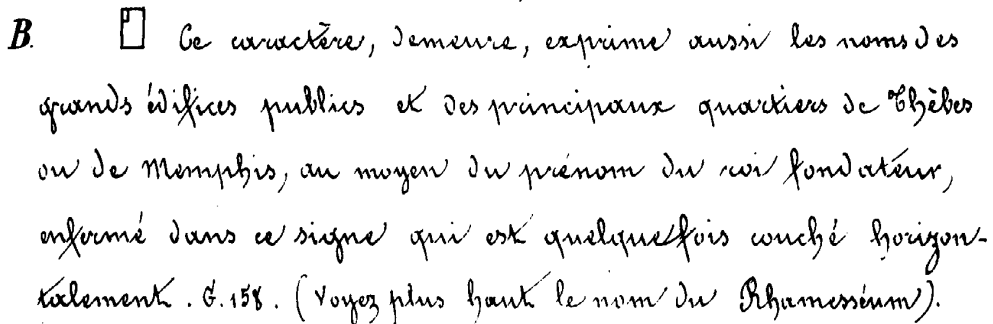 B. 𓉗 Ce caractère, demeure, exprime aussi les noms des
grands édifices publics et des principaux quartiers de Thèbes
ou de Memphis, au moyen du prénom du roi fondateur,
enfermé dans ce signe qui est quelquefois couché horizon-
talement. G. 158. (Voyez plus haut le nom du Rhamesséum).